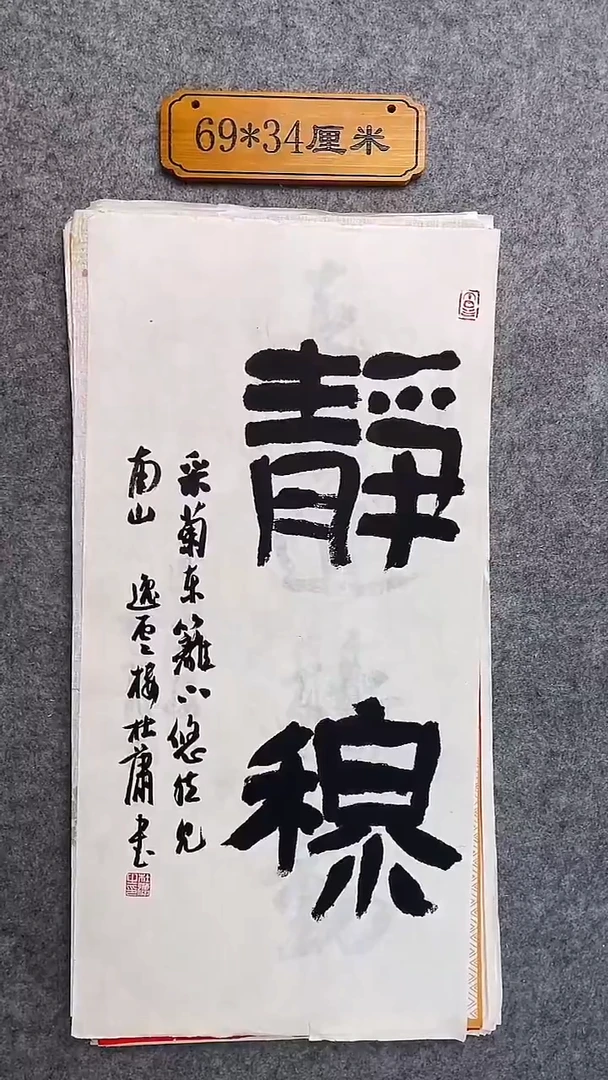 69*34厘米
靜穆
采菊东籬下悠然见
南山 逸雲楼杜蕭书